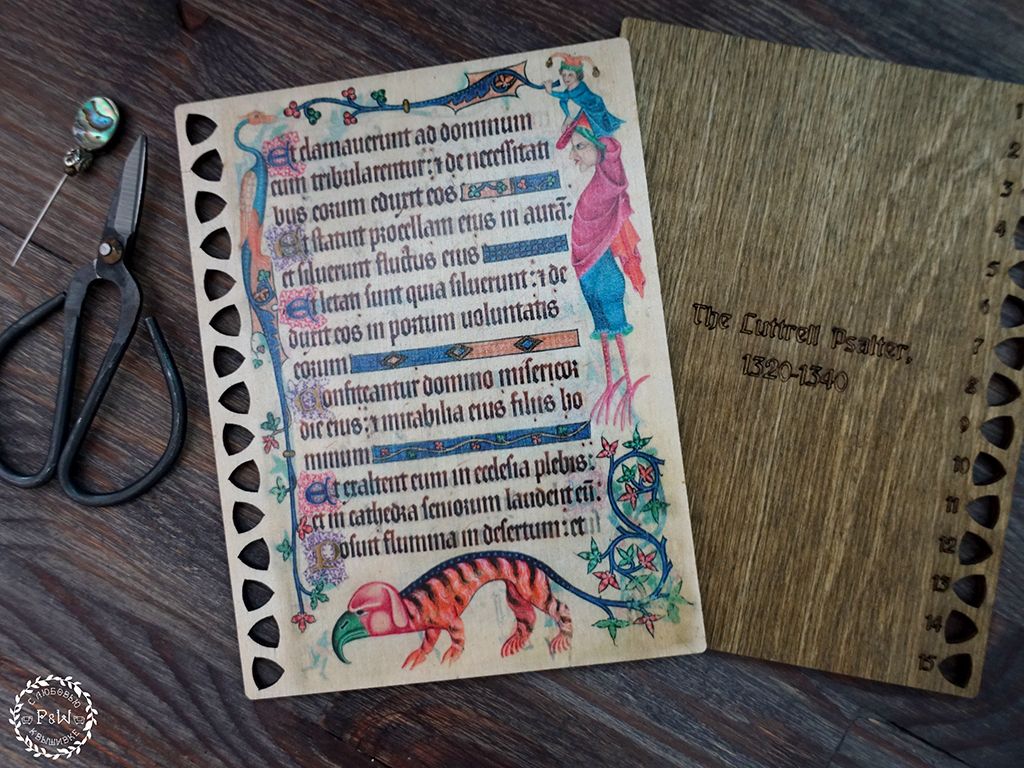 Et clamauerunt ad dominum
cum tribularentur: ⁊ de necessitati
bus eorum eduxit eos
Et statuit procellam eius in aurā:
et siluerunt fluctus eius
Et letati sunt quia siluerunt: ⁊ de
duxit eos in portum uoluntatis
eorum
Confiteantur domino misericor
die eius: ⁊ mirabilia eius filiis ho
minum
Et exaltent eum in ecclesia plebis:
et in cathedra seniorum laudent eū.
Posuit flumina in desertum: et
The Luttrell Psalter,
1320-1340
1
2
3
4
5
6
7
8
9
10
11
12
13
14
15
С ЛЮБОВЬЮ
P&W
К ВЫШИВКЕ